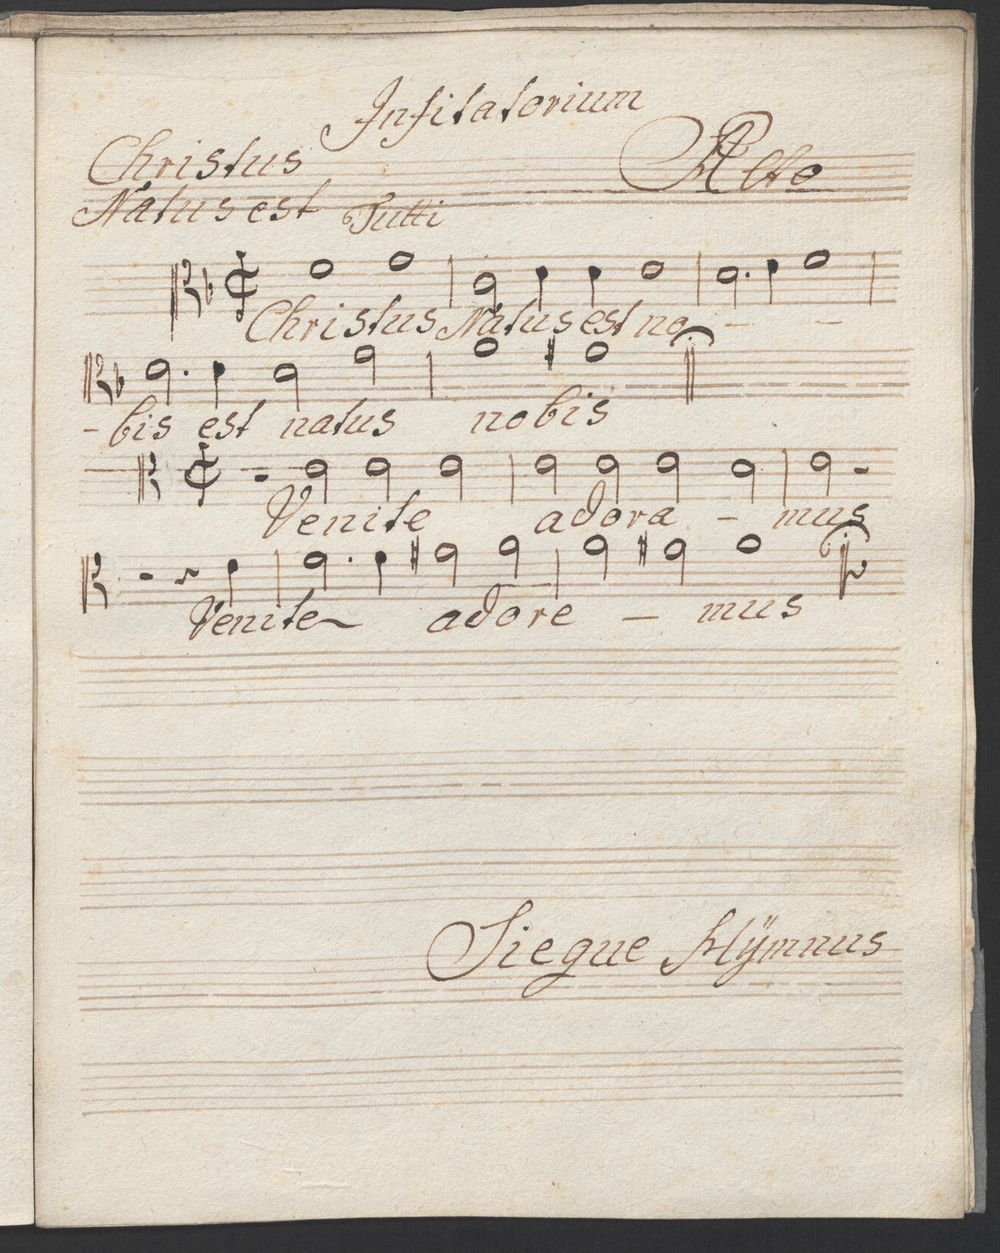 Infitatorium
Christus Alto
Natus est Tutti
Christus Natus est no - -
- bis est natus nobis
Venite adora - mus
Venite adore - mus
Siegue Hÿmnus